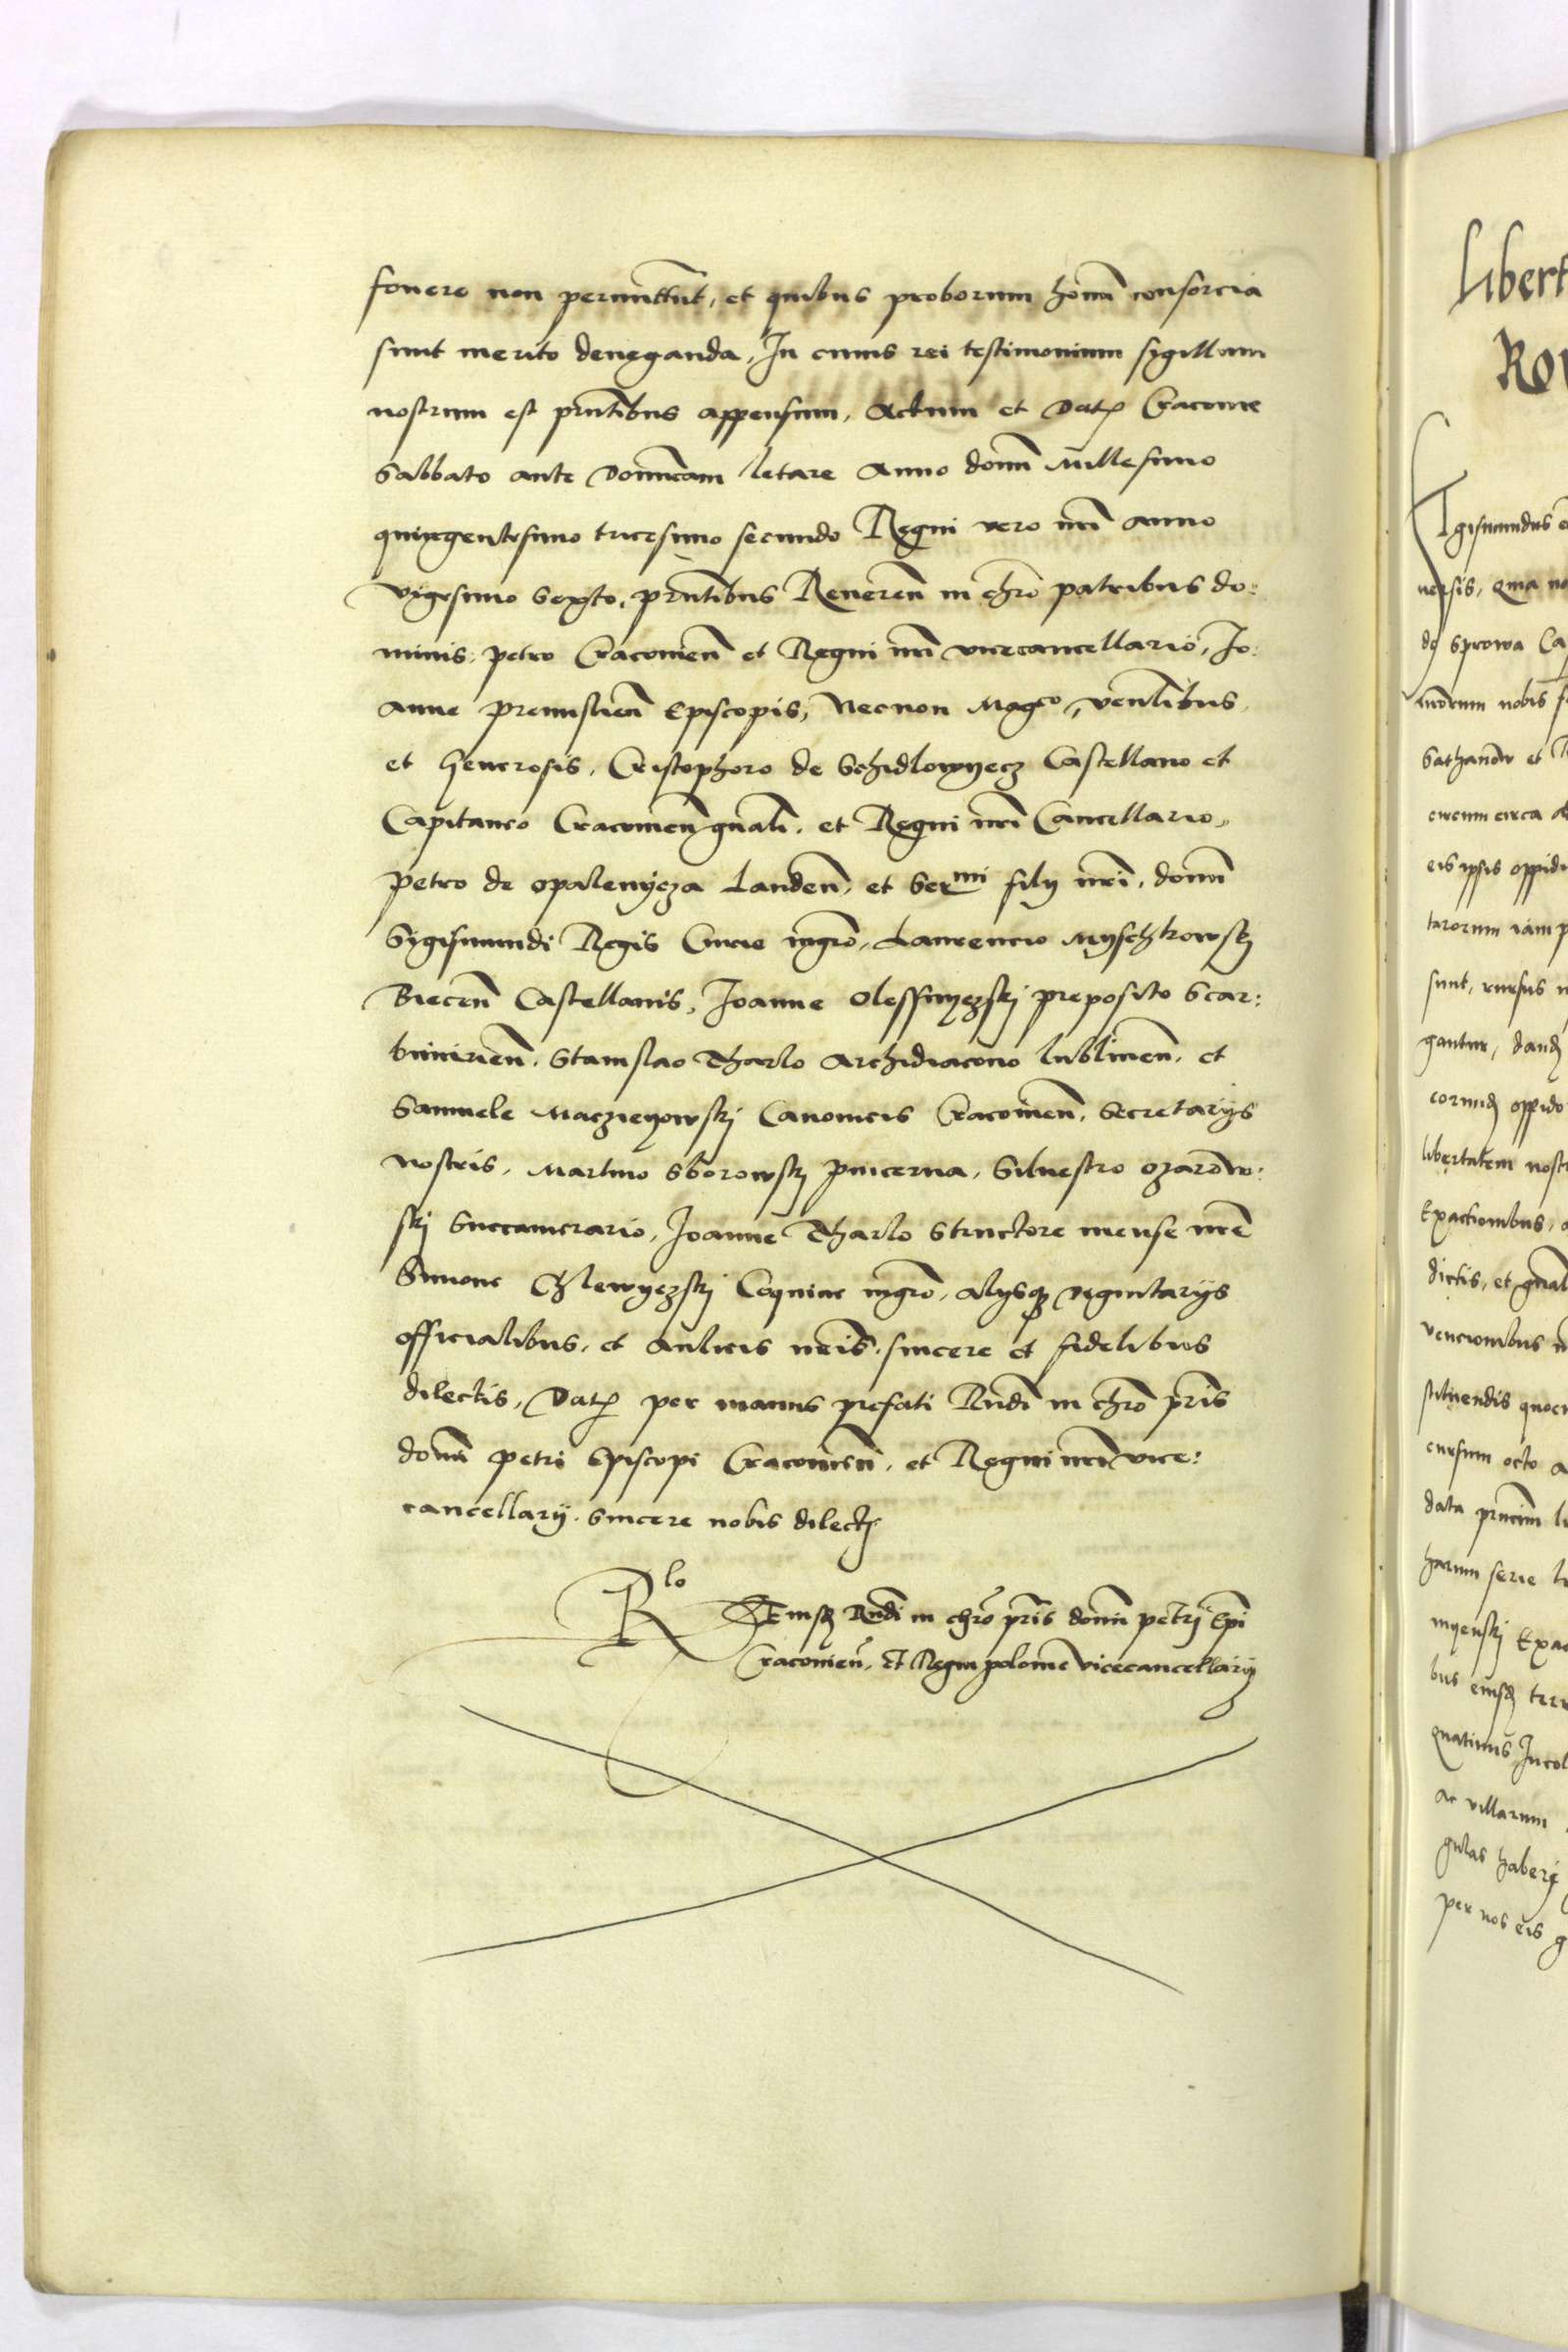 fouere non permittūt, et quibus proborum homī consorcia
sunt merito deneganda, In cuius rei testimonium sygillum
nostrum est pr̄ntibus appensum, Actum et Datꝭ Cracovie
Sabbato ante Dominicam letare Anno domī Millesimo
quingentesimo tricesimo secundo Regni vero nrī anno
vigesimo Sexto, pr̄ntibus Reueren̄ in chrō patribus do:
minis, petro Cracovien̄ et Regni nrī vicecancellario, Jo:
anne premislien̄ Episcopis, Necnon Magco, venlibus,
et Generosis, Cristophoro de Schidlowyecz Castellano et
Capitaneo Cracovien̄ gnāli, et Regni nrī Cancellario,
petro de opalenycza Landen̄, et Sermi filij nrī, domī
Sygismundi Regis Curie mgrō, Laurencio Myschkowskj
Biecen̄ Castellanis, Joanne Olessnyczskj preposito Scar:
bimirien̄, Stanislao Tharlo Archidiacono lublinen̄, et
Samuele Macziejowskj Canonicis Cracovien̄, Secretarijs
nostris, Martino Sborowskj pincerna, Siluestro ozarow:
skj Succamerario, Joanne Tharlo Structore mense nrē
Simone Chlewyczskj Coquine mgrō, alijsqꝫ dignitarijs
officialibus, et aulicis nrīs, sincere et fidelibus
dilectis, Datꝭ per manus prefati Rndī in chrō pr̄is
domī petri Episcopi Cracovien̄, et Regni nrī vice:
cancellarij, sincere nobis dilecti
Rlo Eiusdꝫ Rndī in chrō pr̄is domī petri Epī
Cracovien̄, et Regni polonie vicecancellarij
Libert
Ro
Sigismundus
uersis, Qma no
de Sprowa Ca
nobis
Sathanow et
circa
eis ipsis oppid
iam
sunt, rursus
gantur,
oppido
libertatem nost
Exactionibus,
dictis, et gnāl
vencionibus
octo
data
harum serie
Exac
bus
quatinus Incol
ac villarum
gulas habere
per nos eis